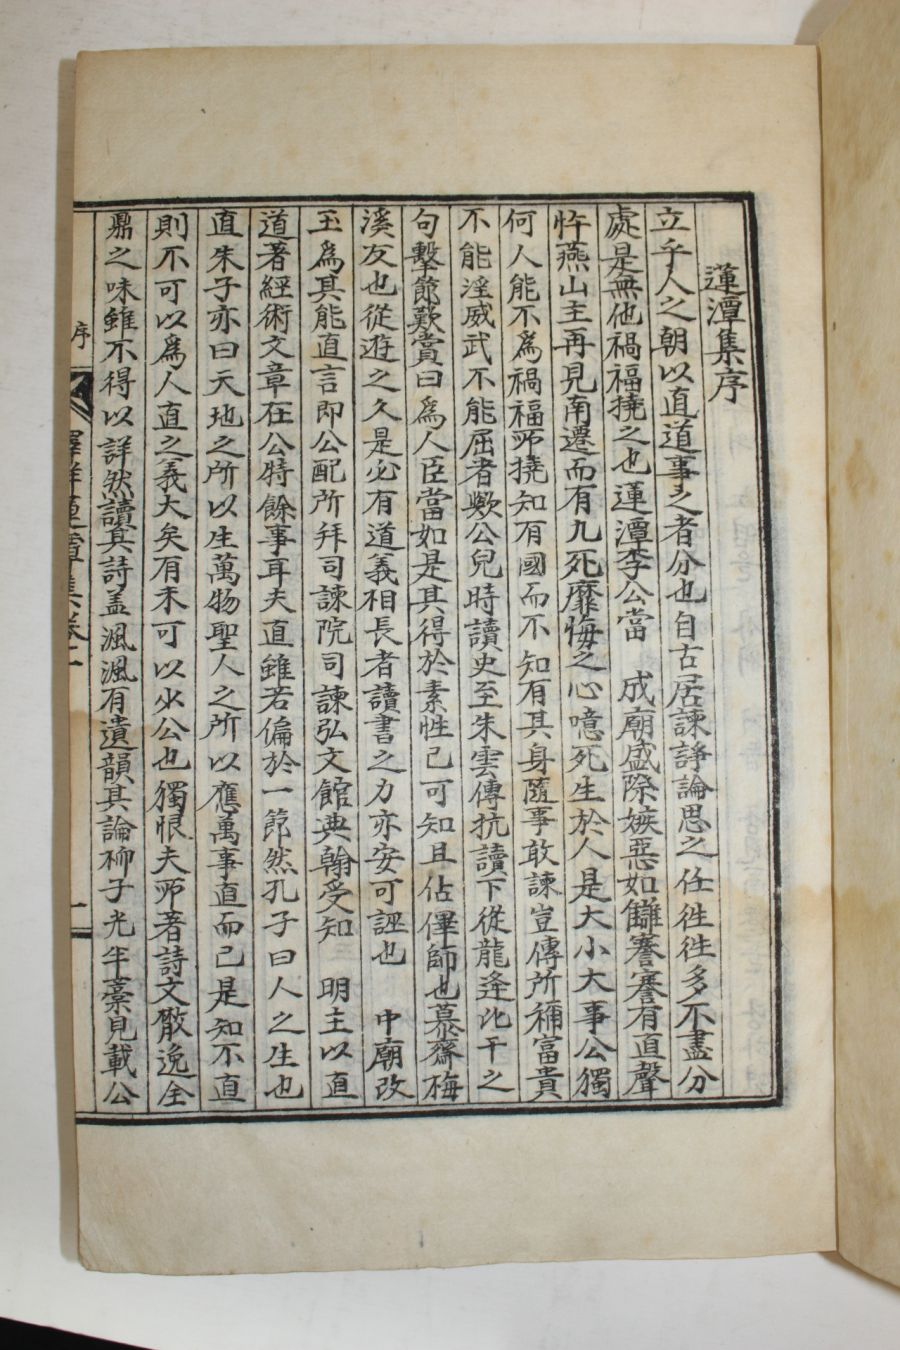 蓮潭集序
立乎人之朝以直道事之者分也自古居諫諍論思之任徃徃多不盡分
處是無他禍福撓之也蓮潭李公當 成廟盛際嫉惡如讎謇謇有直聲
忤燕山主再見南遷而有九死靡悔之心噫死生於人是大小大事公獨
何人能不為禍福所撓知有國而不知有其身隨事敢諫豈傳所稱富貴
不能淫威武不能屈者歟公兒時讀史至朱雲傳抗讀下從龍逄比干之
句擊節歎賞曰爲人臣當如是其得於素性已可知且佔俾師也慕齋梅
溪友也從遊之久是必有道義相長者讀書之力亦安可誣也 中廟改
玉爲其能直言即公配所拜司諫院司諫弘文館典翰受知 明主以直
道著經術文章在公特餘事耳夫直雖若偏於一節然孔子曰人之生也
直朱子亦曰天地之所以生萬物聖人之所以應萬事直而已是知不直
則不可以爲人直之義大矣有未可以少公也獨恨夫所著詩文散逸全
鼎之味雖不得以詳然讀其詩盖渢渢有遺韻其論柳子光半藁見載公
序
蓮潭集卷一
一